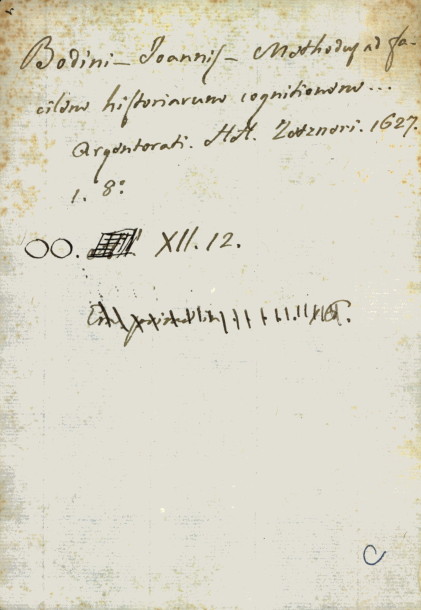 Bodini – Joannis – Methodus ad fa-
cilem historiarum cognitionem...
Argentorati. HH. Zetzneri. 1627.
1. 8°
OO. XII. 12.
C